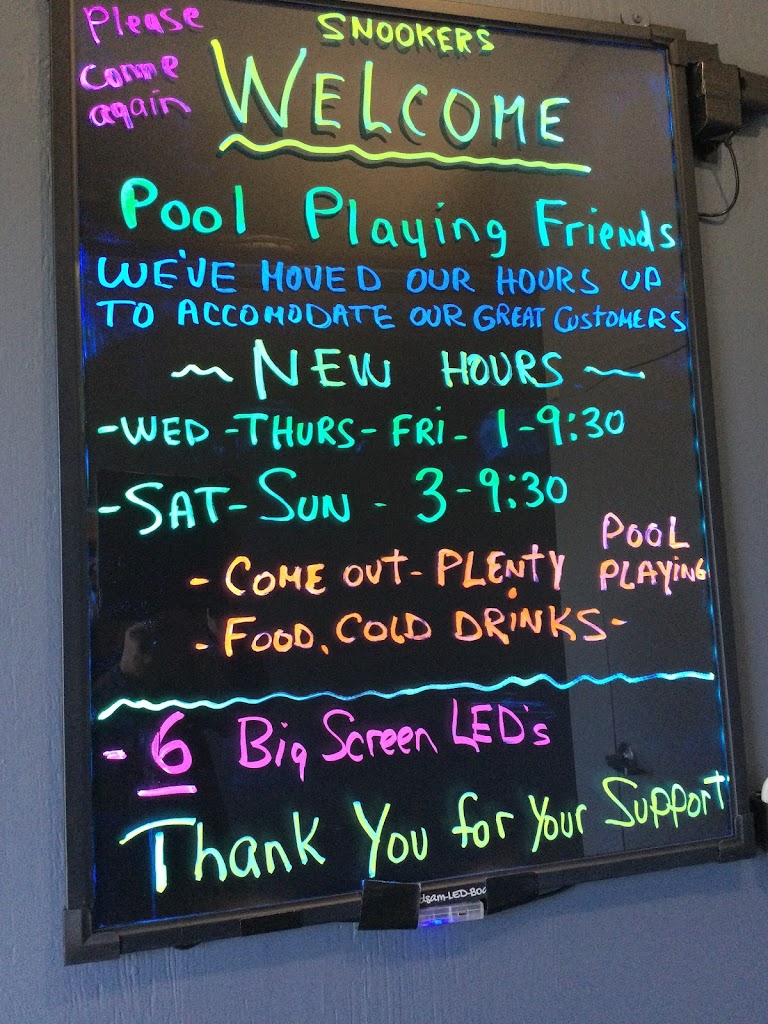 Please
come
again
SNOOKERS
WELCOME
Pool Playing Friends
WE'VE MOVED OUR HOURS UP
TO ACCOMODATE OUR GREAT CUSTOMERS
~ NEW HOURS ~
-WED -THURS- FRI- 1-9:30
-SAT-SUN - 3-9:30
- COME OUT- PLENTY POOL PLAYING
- FOOD, COLD DRINKS-
- 6 Big Screen LED's
Thank You for Your Support